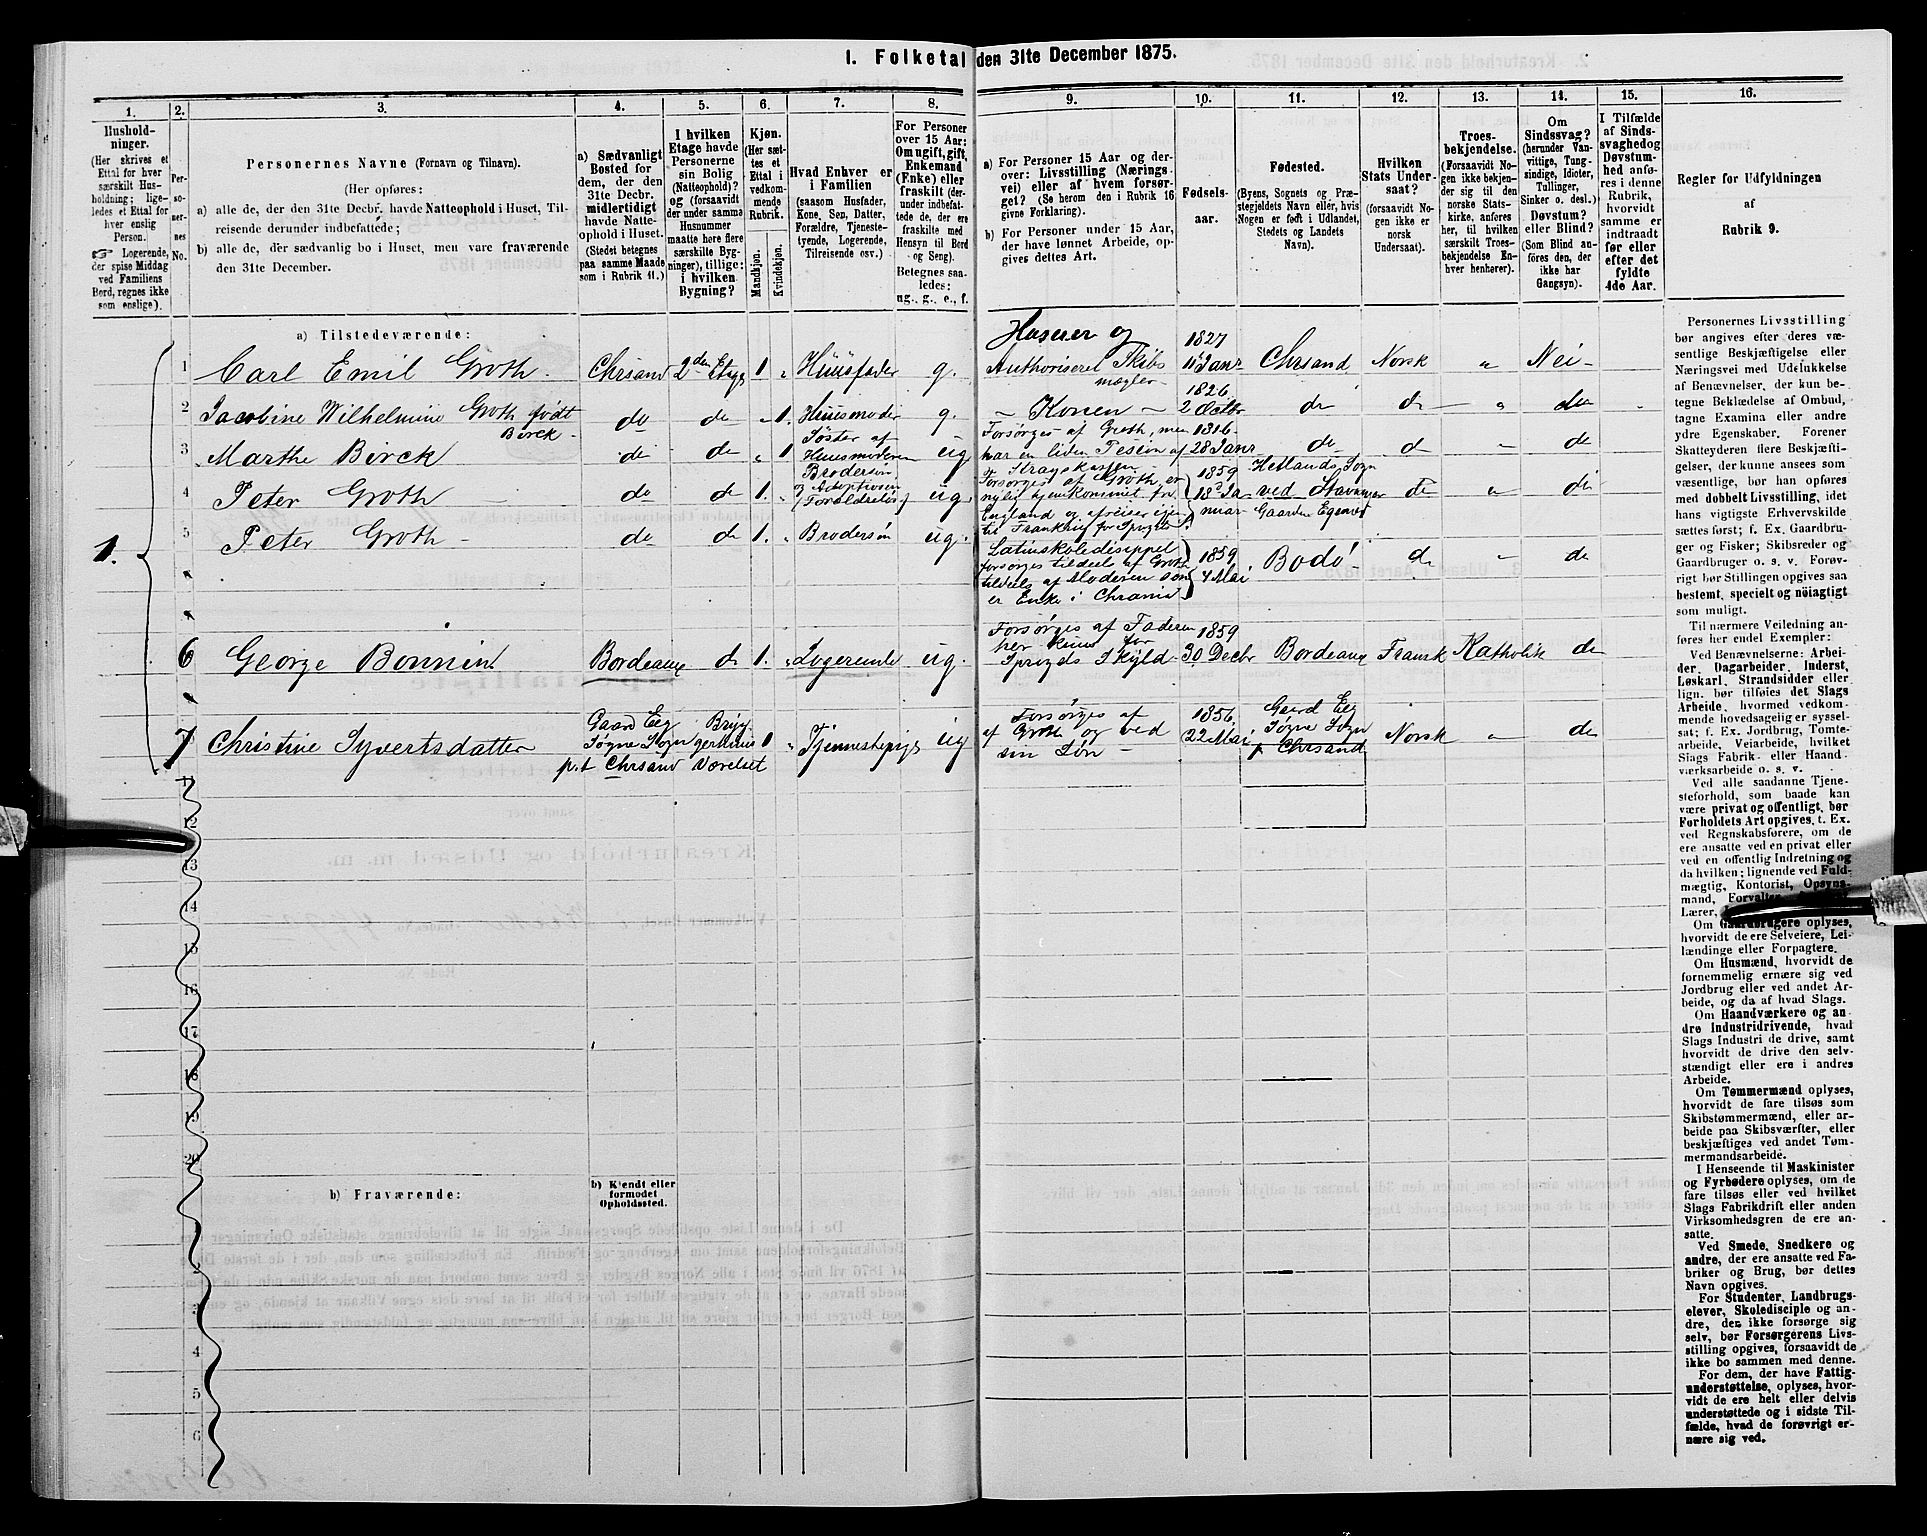 1. Folketal den 31te December 1875.
1.
Hushold-
ninger.
(Her skrives et
Ettal for hver
særskilt Hus-
holdning; lige-
ledes et Ettal for
hver enslig
Person.
☞ Logerende,
der spise Middag
ved Familiens
Bord, regnes ikke
som enslige).
2.
Per-
so-
ner-
nes
No.
3.
Personernes Navne (Fornavn og Tilnavn).
(Her opføres:
a) alle de, der den 31te Decbr. havde Natteophold i Huset, Til-
reisende derunder indbefattede;
b) alle de, der sædvanlig bo i Huset, men vare fraværende
den 31te December.
4.
a) Sædvanligt
Bosted for
dem, der den
31te Decbr.
midlertidigt
havde Natte-
ophold i Huset.
(Stedet betegnes
paa samme Maade
som i Rubrik 11.)
5.
I hvilken
Etage havde
Personerne
sin Bolig
(Natteophold)?
og (forsaavidt
der under samme
Husnummer
maatte høre flere
særskilte Byg-
ninger), tillige:
i hvilken
Bygning?
6.
Kjøn.
(Her sæt-
tes et
Ettal i
vedkom-
mende
Rubrik.
Mandkjøn.
Kvindekjøn.
7.
Hvad Enhver er
i Familien
(saasom Husfader,
Kone, Søn, Datter,
Forældre, Tjeneste-
tyende, Logerende,
Tilreisende osv.)
8.
For Personer
over 15 Aar:
Om ugift, gift,
Enkemand
(Enke) eller
fraskilt (der-
under indbefat-
tede de, der ere
fraskilte med
Hensyn til Bord
og Seng).
Betegnes saa-
ledes:
ug., g., e., f.
9.
a) For Personer 15 Aar og der-
over: Livsstilling (Nærings-
vei) eller af hvem forsør-
get? (Se herom den i Rubrik 16
givne Forklaring).
b) For Personer under 15 Aar,
der have lønnet Arbeide, op-
gives dettes Art.
10.
Fødsels-
aar.
11.
Fødested.
(Byens, Sognets og Præ-
stegjeldets Navn eller, hvis
Nogen er født i Udlandet,
Stedets og Landets
Navn).
12.
Hvilken
Stats Under-
saat?
(forsaavidt No-
gen ikke er
norsk
Undersaat).
13.
Troes-
bekjendelse.
(Forsaavidt No-
gen ikke bekjen-
der sig til den
norske Stats-
kirke, anføres
her, til hvilket
særskilt Troes-
bekjendelse En-
hver henhører).
14.
Om
Sindssvag?
(herunder Van-
vittige, Tung-
sindige, Idioter,
Tullinger,
Sinker o. desl.)
Døvstum?
eller Blind?
(Som Blind an-
føres den, der
ikke har
Gangsyn).
15.
I Tilfælde
af Sinds-
svaghed og
Døvstum-
hed anfø-
res i denne
Rubrik,
hvorvidt
samme er
indtraadt
før eller
efter det
fyldte
4de Aar.
16.
Regler for Udfyldningen
af
Rubrik 9.
a) Tilstedeværende:
1.
1 Carl Emil Groth. Chrsand 2den Etage 1 „ Huusfader g. Huseier og Authoriseret Skibs mægler 1827 11 Janr Chrsand Norsk „ Nei
2 Jacobine Wilhelmine Groth født Birck do do „ 1. Huusmoder g. Konen 1826 2 Octbr do do „ do
3 Marthe Birck do do „ 1 Søster af Huusmoderen ug Forsørges af Groth, men har en liden Pesion af 1816 28 Janr do d „ de
4 Peter Groth do do 1. „ Brodersøn og Adoptivsøn ug. Forsørges af Groth, er nylig hjemkommet fra England og afreiser igjen til Frankrig for Sprogets 1859 18de Januar Hetlands Sogn ved Stavanger Gaarden do „ do
5 Peter Groth do do 1. „ Brodersøn ug. Latinskoledisippel forsørges tildeels af Groth tildeels af Moderen som er Enke i Chrania 1859 4 Mai Bodø d „ de
6 George Bonnin Bordeaux d 1. „ Logerende ug. Forsørges af Faderen her kuns for Sprogets Skyld 1859 30 Decbr Bordeaux Fransk Katholik de
7 Christine Syvertsdatter Gaard Eeg Søgne Sogn p.t Chrsand Bryggerhuus Værelset „ 1 Tjennestepige ug Forsørges af Groth og ved sin Løn 1856 22 Mai Gaard Eeg Søgne Sogn p Chrsand Norsk „ de
11
12
13
14
15
16
17
18
19
20
b) Fraværende:
b) Kjendt eller
formodet
Opholdssted.
1
2
3
4
5
6
Personernes Livsstilling
bør angives efter deres væ-
sentlige Beskjæftigelse eller
Næringsvei med Udelukkelse
af Benævnelser, der kun be-
tegne Beklædelse af Ombud,
tagne Examina eller andre
ydre Egenskaber. Forener
Skatteyderen flere Beskjæfti-
gelser, der kunne ansees som
væsentlige, bør han opføres
med dobbelt Livsstilling, idet
hans vigtigste Erhvervskilde
sættes først; f. Ex. Gaardbru-
ger og Fisker; Skibsreder og
Gaardbruger o. s. v. Forøv-
rigt bør Stillingen opgives saa
bestemt, specielt og nøiagtigt
som muligt.
Til nærmere Veiledning an-
føres her endel Exempler:
Ved Benævnelserne: Arbei-
der, Dagarbeider, Inderst,
Løskarl, Strandsidder eller
lign. bør tilføies det Slags
Arbeide, hvormed vedkom-
mende hovedsagelig er syssel-
sat; f. Ex. Jordbrug, Tomte-
arbeide, Veiarbeide, hvilket
Slags Fabrik- eller Haand-
værksarbeide o. s. v.
Ved alle saadanne Tjene-
steforhold, som baade kan
være privat og offentligt, bør
Forholdets Art opgives, t. Ex.
ved Regnskabsførere, om de
ere ansatte ved en privat eller
ved en offentlig Indretning og
da hvilken; lignende ved Fuld-
mægtig, Kontorist, Opsyns-
mand, Forvalter,
Lærer,
Om Gaardbrugere oplyses,
hvorvidt de ere Selveiere, Lei-
lændinge eller Forpagtere.
Om Husmænd, hvorvidt de
fornemmelig ernære sig ved
Jordbrug eller ved andet Ar-
beide, og da af hvad Slags.
Om Haandværkere og an-
dre Industridrivende, hvad
Slags Industri de drive, samt
hvorvidt de drive den selv-
stændigt eller ere i andres
Arbeide.
Om Tømmermænd oplyses,
hvorvidt de fare tilsøs som
Skibstømmermænd, eller ar-
beide paa Skibsværfter, eller
beskjæftiges ved andet Tøm-
mermandsarbeide.
I Henseende til Maskinister
og Fyrbødere oplyses, om de
fare tilsøs eller ved hvilket
Slags Fabrikdrift eller anden
Virksomhedsgren de ere an-
satte.
Ved Smede, Snedkere og
andre, der ere ansatte ved Fa-
briker og Brug, bør dettes
Navn opgives.
For Studenter, Landbrugs-
elever, Skoledisciple og an-
dre, der ikke forsørge sig
selv, bør Forsørgerens Livs-
stilling opgives, forsaavidt de
ikke bo sammen med denne.
For dem, der have Fattig-
understøttelse, oplyses, hvor-
vidt de ere helt eller delvis
understøttede og i sidste Til-
fælde, hvad de forøvrigt er-
nære sig ved.